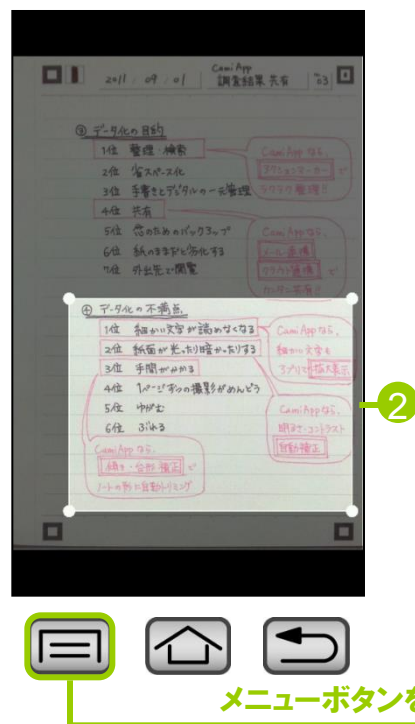 CamiApp
2011 / 09 / 01 調査結果 共有 No. 03
③ データ化の目的
1位 整理・検索
2位 省スペース化
3位 手書きとデジタルの一元管理
4位 共有
5位 念のためのバックアップ
6位 紙のままだと劣化する
7位 外出先で閲覧
CamiAppなら、
アクションマーカー で
ラクラク整理!!
CamiAppなら、
メール連携
クラウド連携 で
カンタン共有!!
④ データ化の不満点
1位 細かい文字が読めなくなる
2位 紙面が光ったり暗かったりする
3位 手間がかかる
4位 1ページずつの撮影がめんどう
5位 ゆがむ
6位 ぶれる
CamiAppなら、
細かい文字も
アプリで 拡大表示
CamiAppなら、
明るさ・コントラスト
自動補正
CamiAppなら、
傾き・台形 補正 で
ノートの形に自動トリミング
2
メニューボタンを